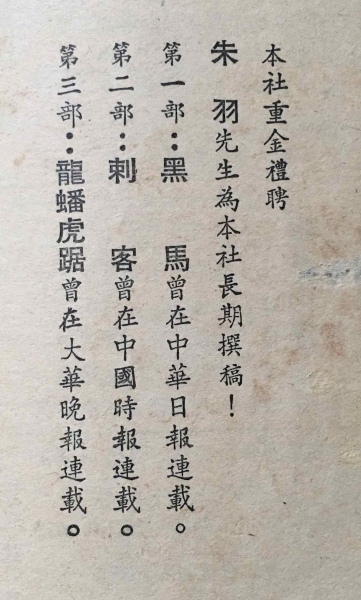 本社重金禮聘
朱　羽先生為本社長期撰稿！
第一部：黑　馬曾在中華日報連載。
第二部：刺　客曾在中國時報連載。
第三部：龍蟠虎踞曾在大華晚報連載。